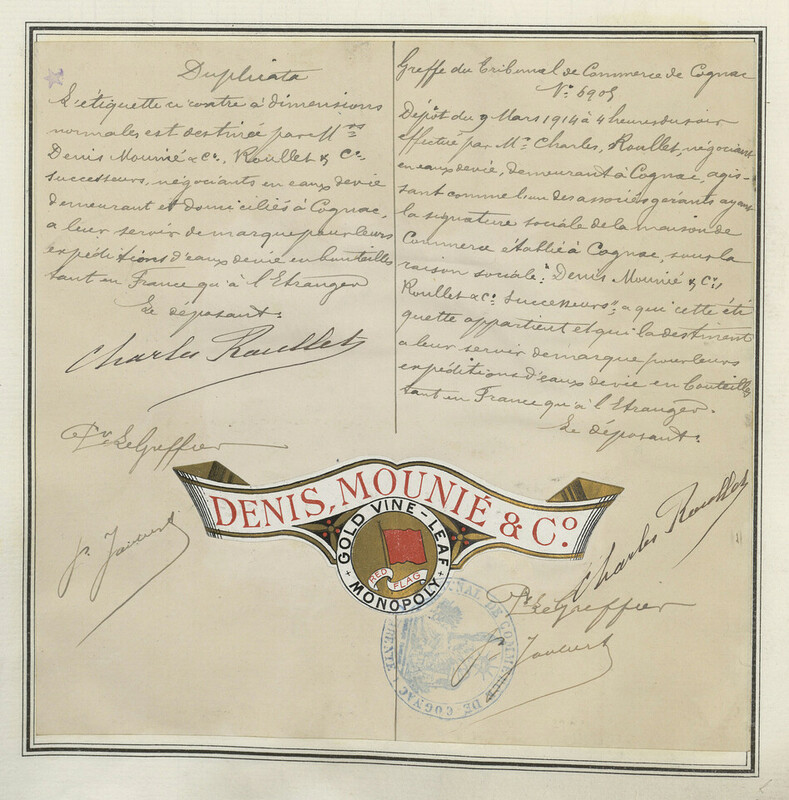 Duplicata
L'étiquette ci contre à dimensions
normales est destinée par Mrs
Denis Mounié & Co, Roullet & Co
successeurs, négociants en eaux de vie
demeurant et domiciliés à Cognac,
a leur servir de marque pour leurs
expéditions d'eaux de vie en bouteilles
tant en France qu'à l'Etranger
Le déposant:
Charles Roullet
Pr. Le Greffier
Greffe du Tribunal de Commerce de Cognac
No 6905
Dépôt du 9 Mars 1914 à 4 heures du soir
effectué par Mr Charles, Roullet, négociant
en eaux de vie, demeurant à Cognac, agis-
sant comme l'un des associés gérants ayant
la signature sociale de la maison de
Commerce établie à Cognac, sous la
raison sociale: "Denis Mounié & Co,
Roullet & Co Successeurs", a qui cette éti
quette appartient et qui la destinent
a leur servir de marque pour leurs
expéditions d'eaux de vie en bouteilles
tant en France qu'à l'Etranger.
Le déposant:
Charles Roullet
Pr. Le Greffier
DENIS, MOUNIÉ & Co.
GOLD VINE-LEAF
RED FLAG
MONOPOLY
TRIBUNAL DE COMMERCE DE COGNAC